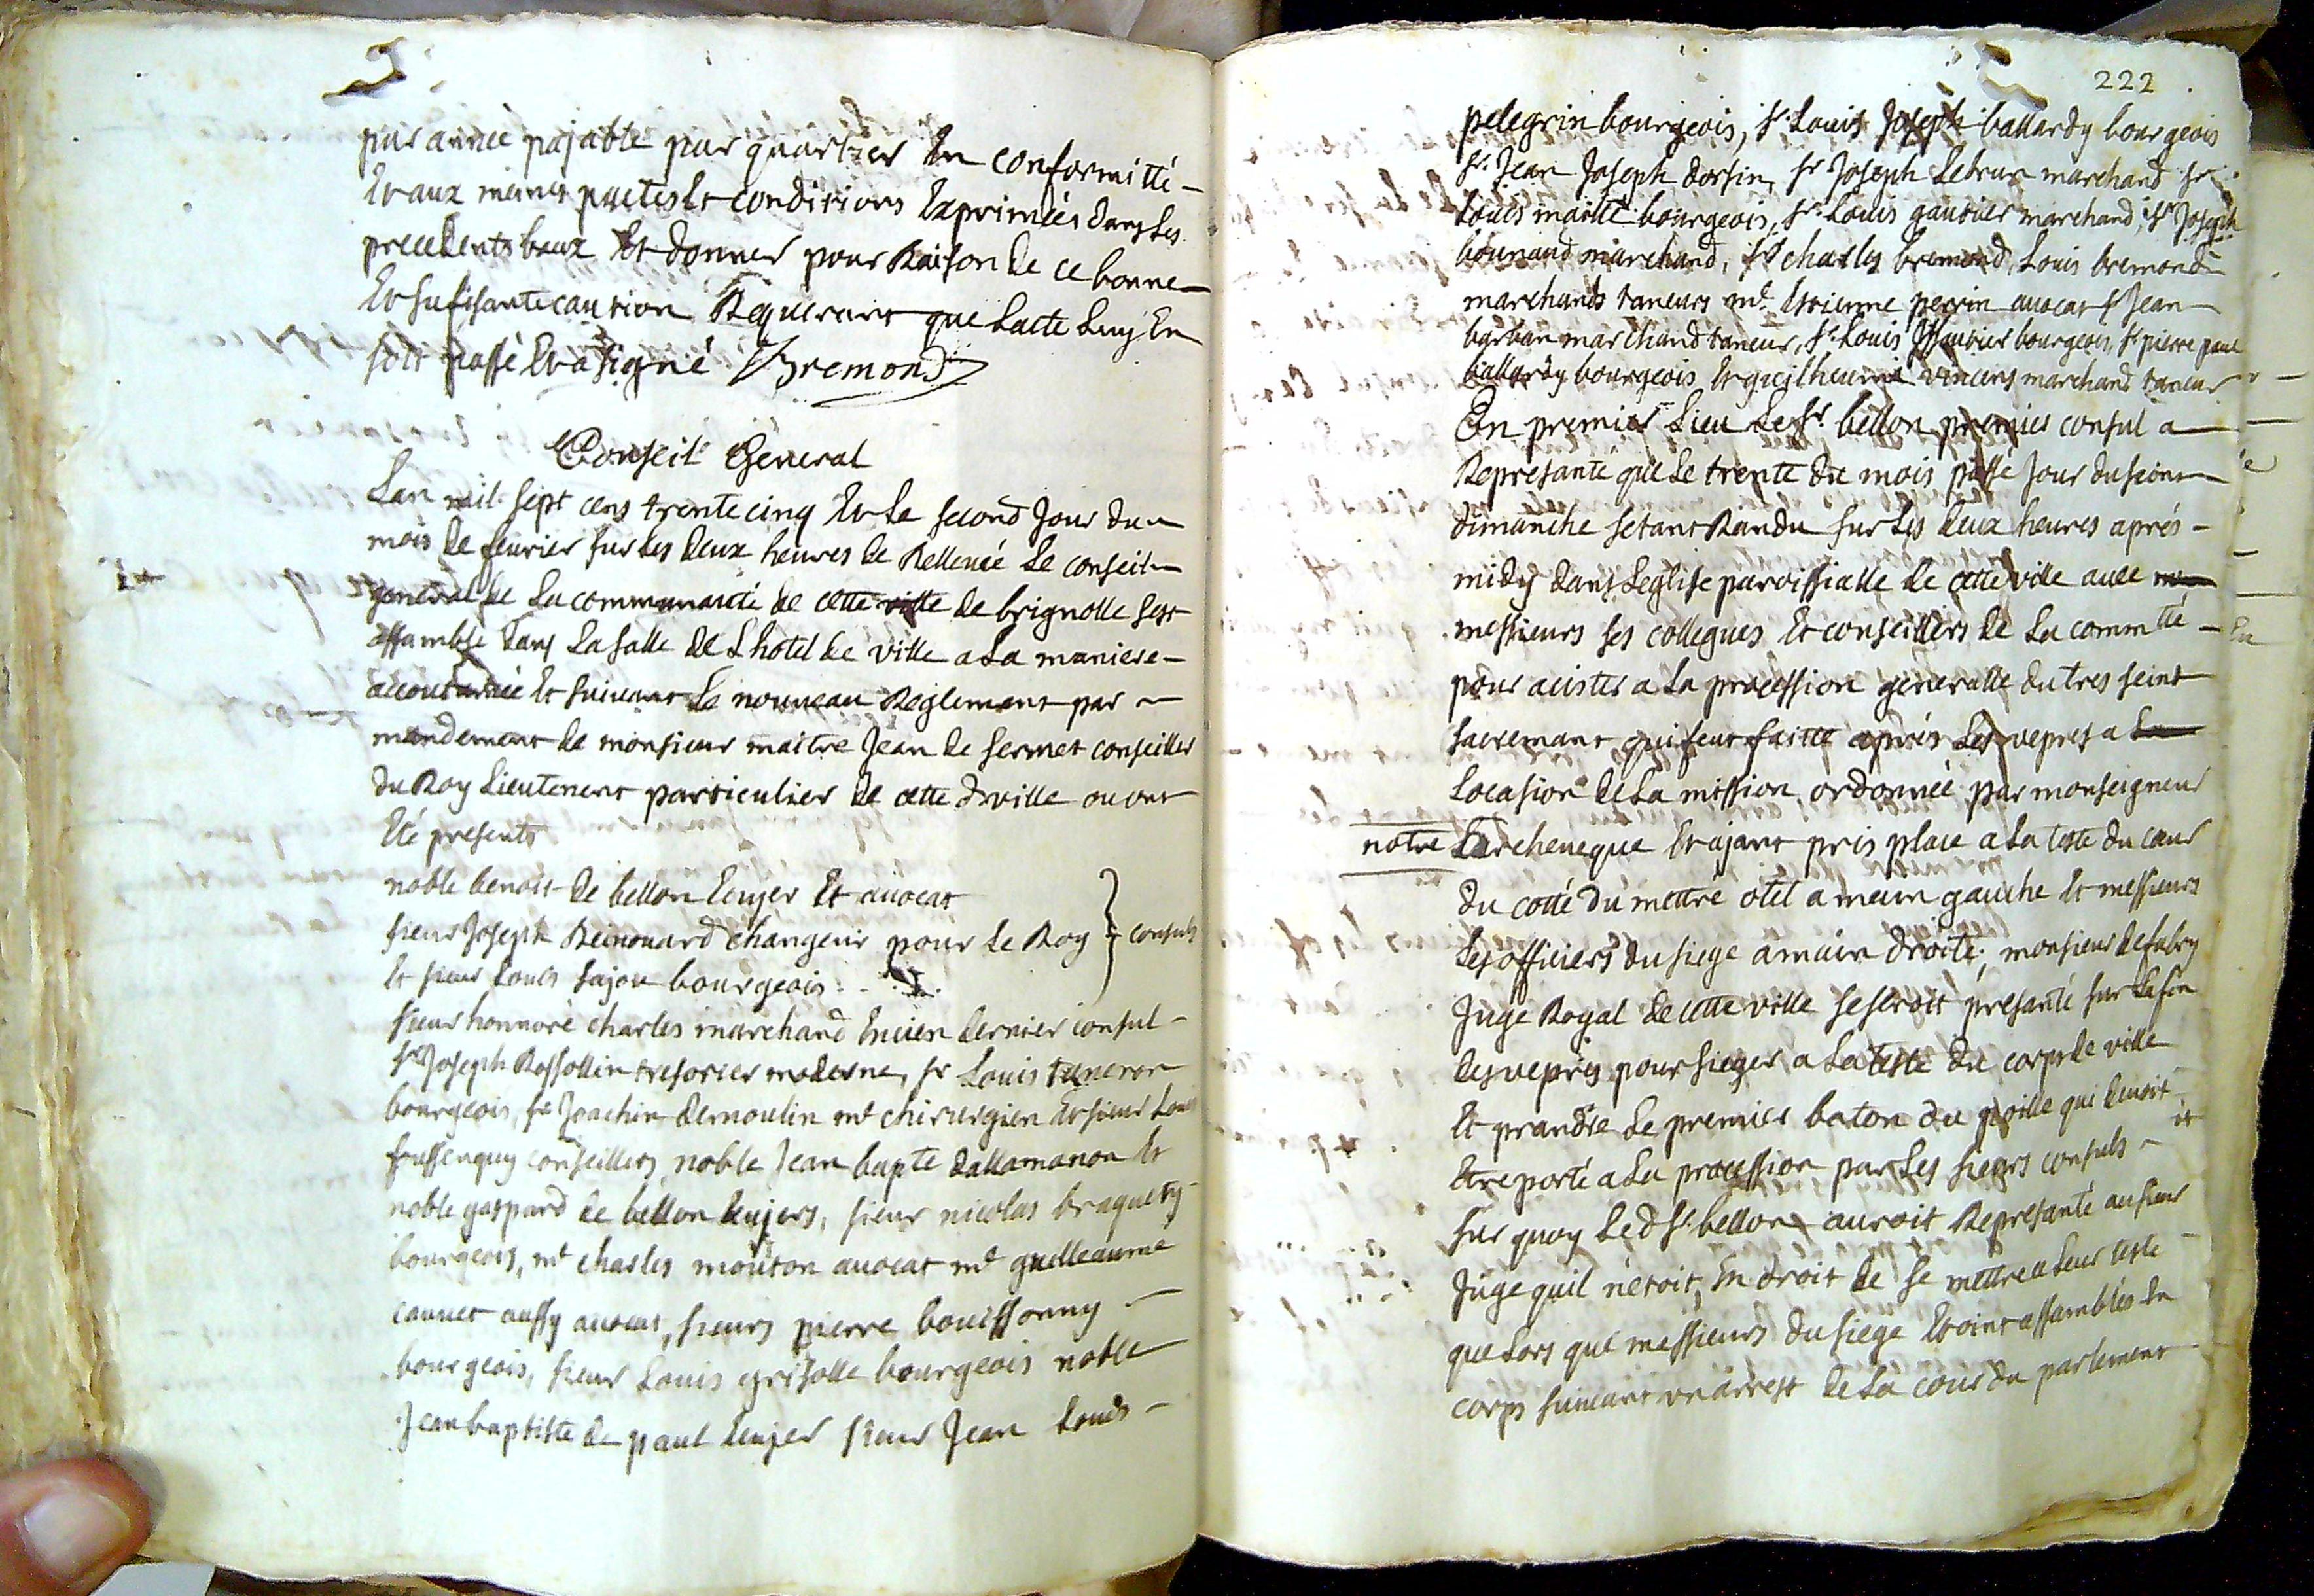 par année pajable par quartier En conformitté
Et aux memes pactes Et conditions Exprimées dans Les
precedents baux Et donner pour Raison de ce bonne
Et sufisante caution Requerant que Lacte Luy En
soit passé Et a signé Bremond
Conseil General
Lan mil sept cens trente cinq Et Le second Jour du
mois de feurier sur Les deux heures de Relleuée Le conseil
general de La communauté de cette ville de brignolle sest
assamblé dans La salle de Lhotel de ville a La maniere
accoutumée Et suiuant Le nouueau Reglement par
mandement de monsieur maitre Jean de sermet conseiller
du Roy Lieutenent particulier de cette d ville ou ont
Eté presents
noble benoit de bellon Ecujer Et auocat
sieur Joseph Reinouard changeur pour Le Roy consuls
Et sieur Louis sajou bourgeois
sieur honnoré charles marchand Encien dernier consul
sr Joseph Rossollin tresorier moderne, sr Louis
bourgeois, sr Joachin demoulin mt chirurgien Et sieur Louis
fussenquy conseillers, noble Jean bapte dallamanon Et
noble gaspard de bellon Ecujers, sieur nicolas braquety
bourgeois, mt charles mouton auocat mt guilleaume
cannet aussy auocat, sieurs pierre bouissonny
bourgeois, sieur Louis grisolle bourgeois noble
Jean baptiste de paul Ecujer sieur Jean Louis
222
pelegrin bourgeois, sr Louis Joseph ballardy bourgeois
sr Jean Joseph dorsin, sr Joseph Lebrun marchand sr
Louis maille bourgeois, sr Louis gautier marchand, sr Joseph
bounaud marchand, sr charles bremond, Louis bremond
marchands taneurs mt Estienne perrin auocat sr Jean
barbau marchand taneur, sr Louis gautier bourgeois, sr pierre paul
ballardy bourgeois Et guilheaume vincens marchand taneur
En premier Lieu Le sr bellon premier consul a
Represanté que Le trente du mois passé Jour du
dimanche setant Randu sur Les deux heures aprés
midy dans Leglise paroissialle de cette ville auec
messieurs ses collegues Et conseillers de La commtté
pour acister a La procession generalle du tres seint
sacremant qui feut faitte aprés Les vepres a La
Locasion de La mission ordonnée par monseigneur
notre Larcheueque Et ajant pris place a La teste du cœur
du cotté du mettre otel a main gauche Et messieurs
Les officiers du siege a main droite, monsieur de fabry
Juge Royal de cette ville se seroit presanté sur La fin
des vepres pour sieger a La teste du corps de ville
Et prandre Le premier baton du poille qui deuoit
Etre porté a La procession par Les sieurs consuls
sur quoy Led sr bellon auroit Represanté au sieur
Juge quil netoit En droit de se mettre a Leur teste
que Lors que messieurs du siege Etoint assamblés En
corps suiuant un arrest de La cour du parlement